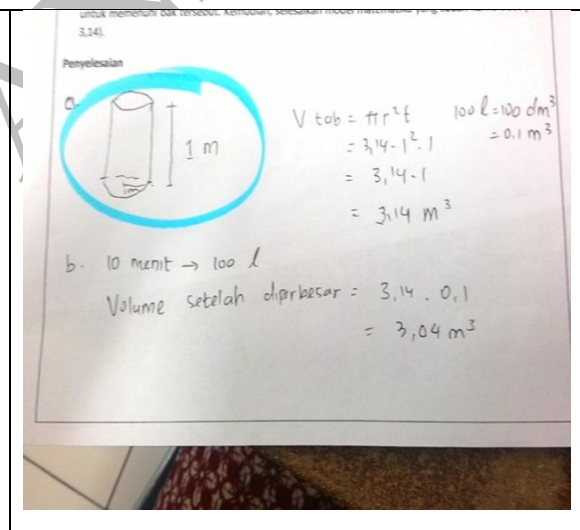 untuk memenuhi bak tersebut. Kemudian, selesaikan model matematika yang
3,14).
Penyelesaian
a.
1 m
1m
V tab = πr²t
= 3,14 - 1² . 1
= 3,14 - 1
= 3,14 m³
100 l = 100 dm³
= 0.1 m³
b. 10 menit → 100 l
Volume setelah diperbesar = 3,14 . 0,1
= 3,04 m³